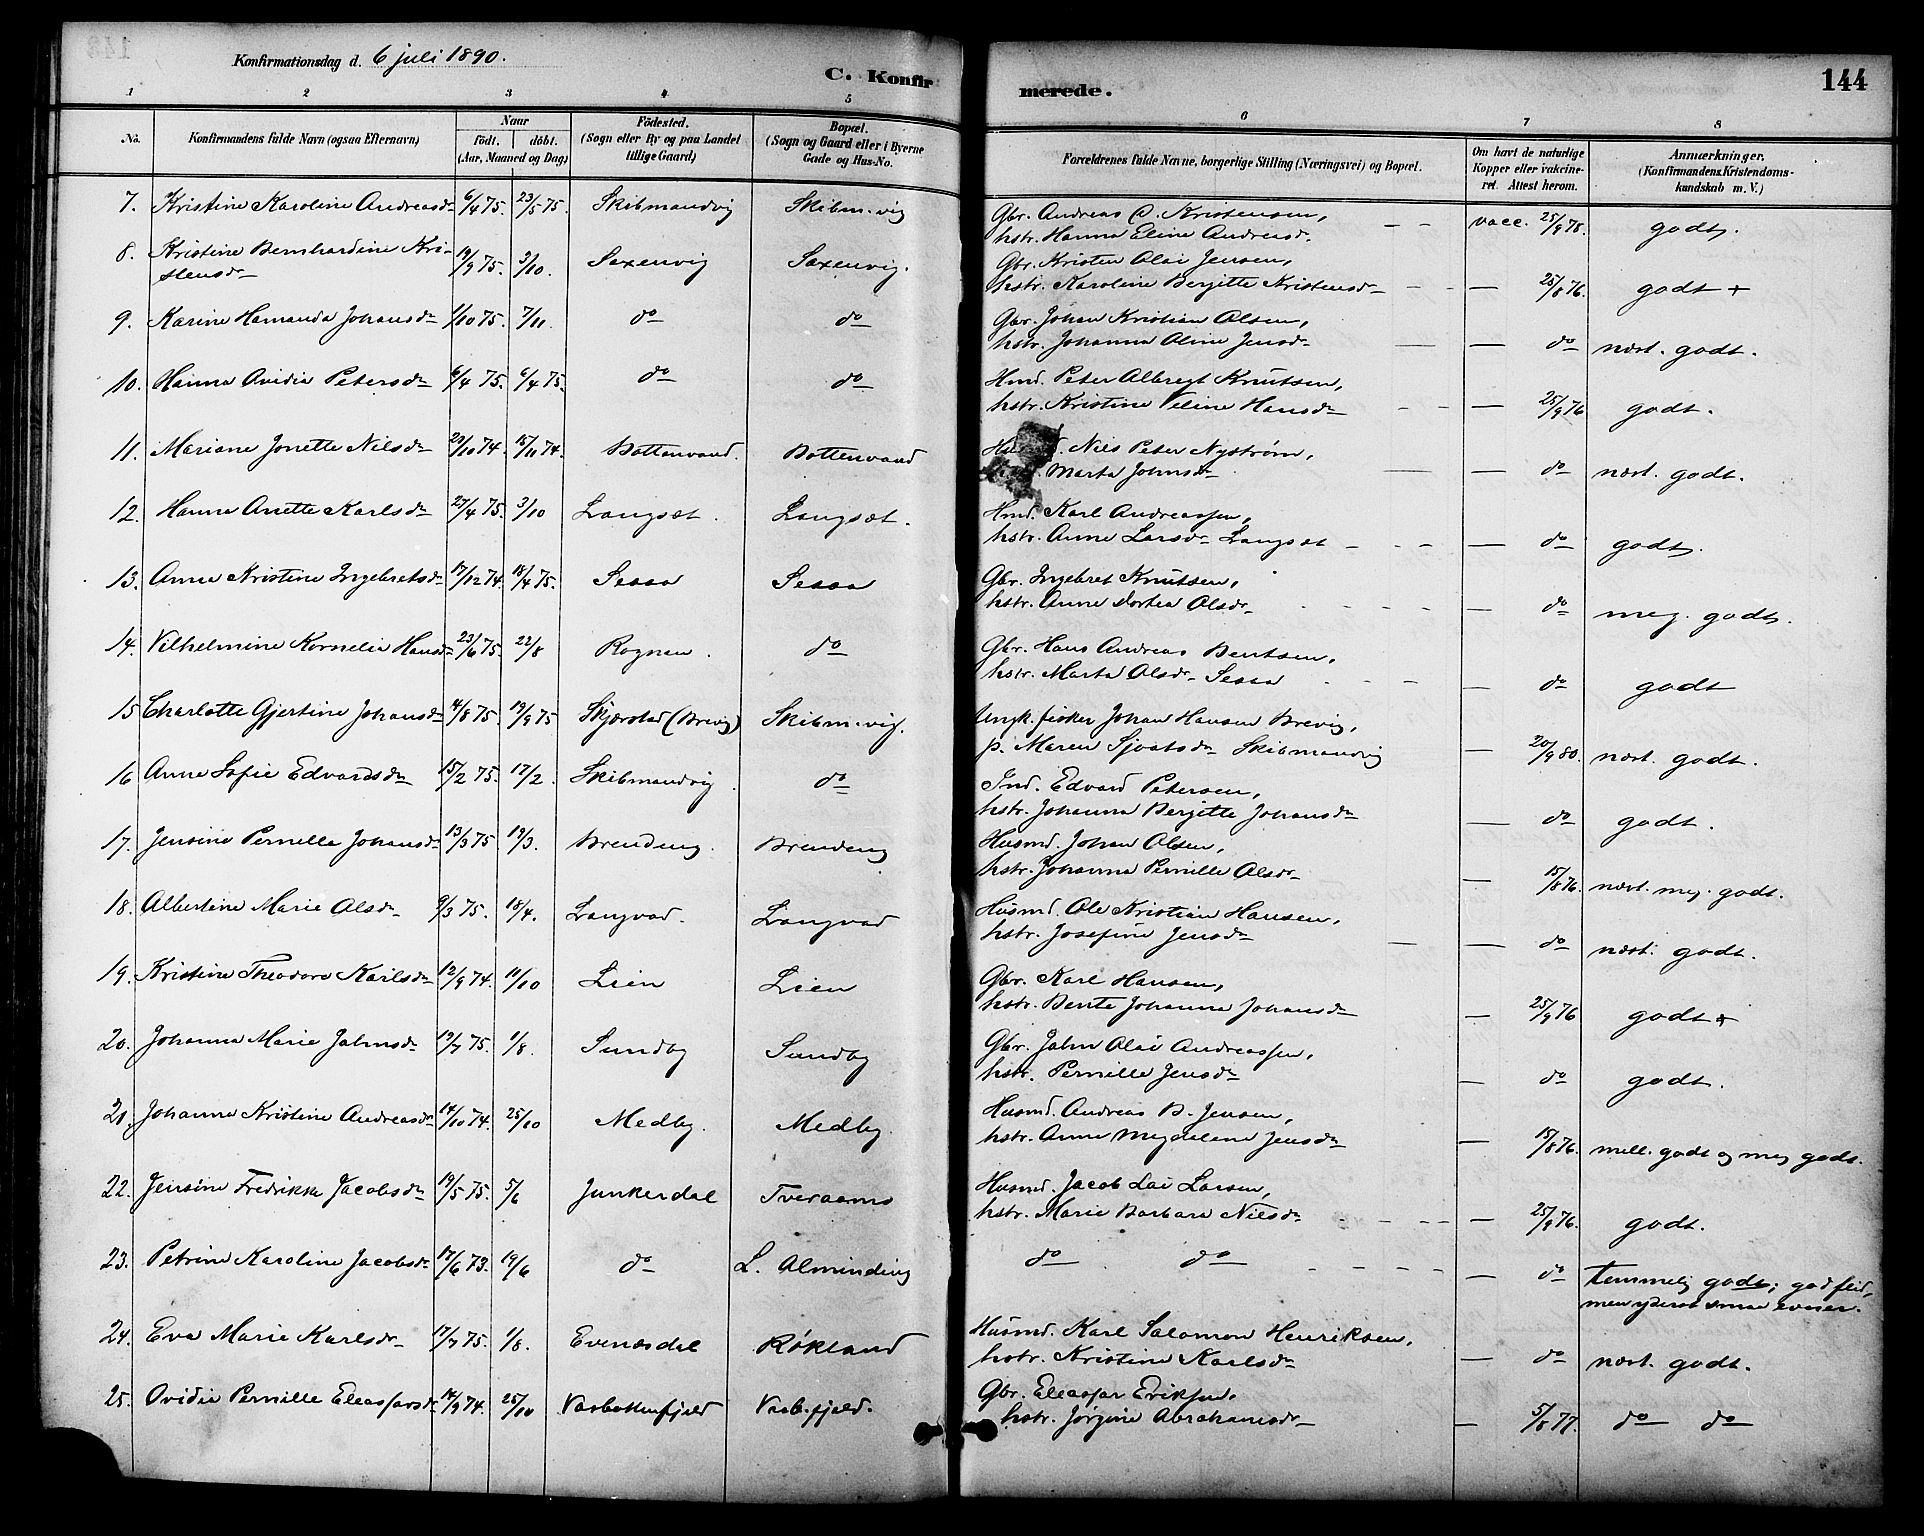 Konfirmationsdag d. 6 juli 1890.
C. Konfirmerede.
144
1 2 3 4 5 6 7 8
No. Konfirmandens fulde Navn (ogsaa Efternavn) Naar födt. döbt. (Aar, Maaned og Dag) Födested. (Sogn eller By og paa Landet tillige Gaard) Bopæl. (Sogn og Gaard eller i Byerne Gade og Hus-No. Forældrenes fulde Navne, borgerlige Stilling (Næringsvei) og Bopæl. Om havt de naturlige Kopper eller vakcineret. Attest herom. Anmærkninger. (Konfirmandens Kristendomskundskab m. V.)
7. Kristine Karoline Andreasdr 6/4 75. 23/5 75. Skibmandvig Skibm.vig Gbr. Andreas C. Kristensen, vacc. 25/9 75. godt.
hstr. Hanna Eline Andreasdr.
8. Kristine Bernhardine Kristensdr 19/9 75. 3/10. Saxenvig Saxenvig. Gbr. Kristen Olai Jensen,
hstr. Karoline Bergitte Kristensdr — 25/8 76. godt +
9. Karine Hamanda Johansdr 1/10 75. 7/11. do do Gbr. Johan Kristian Olsen,
hstr. Johanna Oline Jensdr — do næst. godt.
10. Hanna Ovidia Petersdr 6/4 75. 6/4 75. do do Hmd. Peter Albregt Knutsen,
hstr. Kristine Veline Hansdr — 25/9 76 godt.
11. Mariane Jonette Nilsdr 22/10 74. 15/11 74. Bottenvand. Bottenvand Nils Peter Nystrøm,
Marta Johnsdr — do næst. godt.
12. Hanna Anette Karlsdr 27/4 75. 3/10 Langsæt. Langsæt. Hmd. Karl Andreassen,
hstr. Anne Larsdr Langset — do godt.
13. Anne Kristine Ingebretsdr 17/12 74. 18/4 75. Sessa Sessa Gbr. Ingebret Knutsen,
hstr. Anne Dortea Olsdr — do meg. godt.
14. Vilhelmine Kornelie Hansdr 23/6 75. 22/8 Rognan. do Gbr. Hans Andreas Bentsen,
hstr. Marta Olsdr Sessa — do godt
15 Charlotte Gjertine Johansdr 14/8 75. 19/9 75 Skjærstad (Brevig) Skibm.vig. Ungk. fisker Johan Hansen Brevig,
p. Maren Sjvatsdr Skibmandvig — 20/9 80. næst. godt.
16 Anne Sofie Edvardsdr 15/2 75. 17/2. Skibmandvig do Ind. Edvard Petersen,
hstr. Johanna Bergitte Johansdr — do godt.
17. Jensine Pernelle Johansdr 13/3 75 19/3. Brendeng. Brendeng Husmd. Johan Olsen,
hstr. Johanna Pernille Olsdr — 15/8 76. næst. meg. godt.
18. Albertine Marie Olsdr 9/3 75. 18/4. Langvad. Langvad Husmd. Ole Kristian Hansen,
hstr. Josefine Jensdr — do næst. godt.
19. Kristine Theodora Karlsdr 12/9 74. 11/10 Lien Lien Gbr. Karl Hansen,
hstr. Bente Johanna Johansdr — 25/9 76 godt +
20. Johanna Marie Jahnsdr 19/7 75. 1/8. Sundby Sundby Gbr. Jahn Olai Andreassen,
hstr. Pernille Jensdr — do godt.
21. Johanna Kristine Andreasdr 14/10 74. 25/10 Medby. Medby. Husmd. Andreas B. Jensen,
hstr. Anne Magdelena Jensdr — 15/8 76. mell. godt og meg godt.
22. Jensine Fredrikke Jacobsdr 19/5 75. 5/6 Junkerdal Tveraamo Husmd. Jacob Lai Larsen,
hstr. Marie Barbara Nilsdr — 25/9 76. godt.
23. Petrine Karoline Jacobsdr 17/6 73. 19/6 do L. Alminding do do — do temmelig godt; god flid,
men yderst smaa evner.
24. Eva Marie Karlsdr 17/7 75. 1/8. Evenesdal Røkland Husmd. Karl Salomon Henriksen,
hstr. Kristine Karlsdr — do næst. godt.
25. Ovidia Pernille Eleassarsdr 14/9 74. 25/10 Vasbottenfjeld Vasb.fjeld. Gbr. Eleassar Eriksen,
hstr. Jørgine Abrahamsdr — 5/8 77. do do